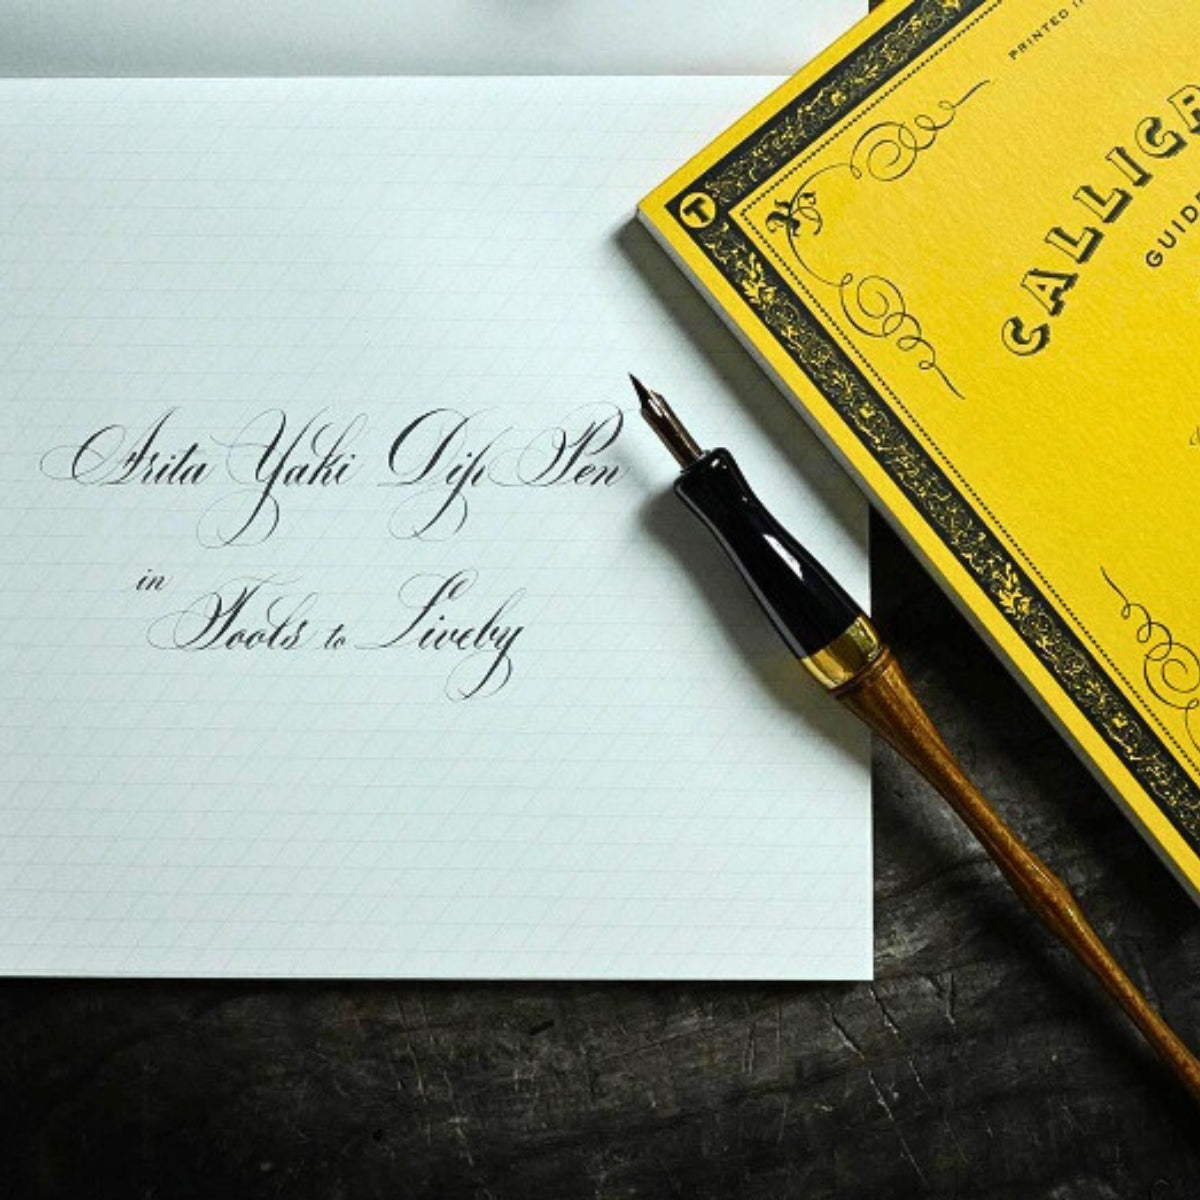 Arita Yaki Dip Pen
in
Tools to Liveby
T
PRINTED I
CALLIGR
GUIDE